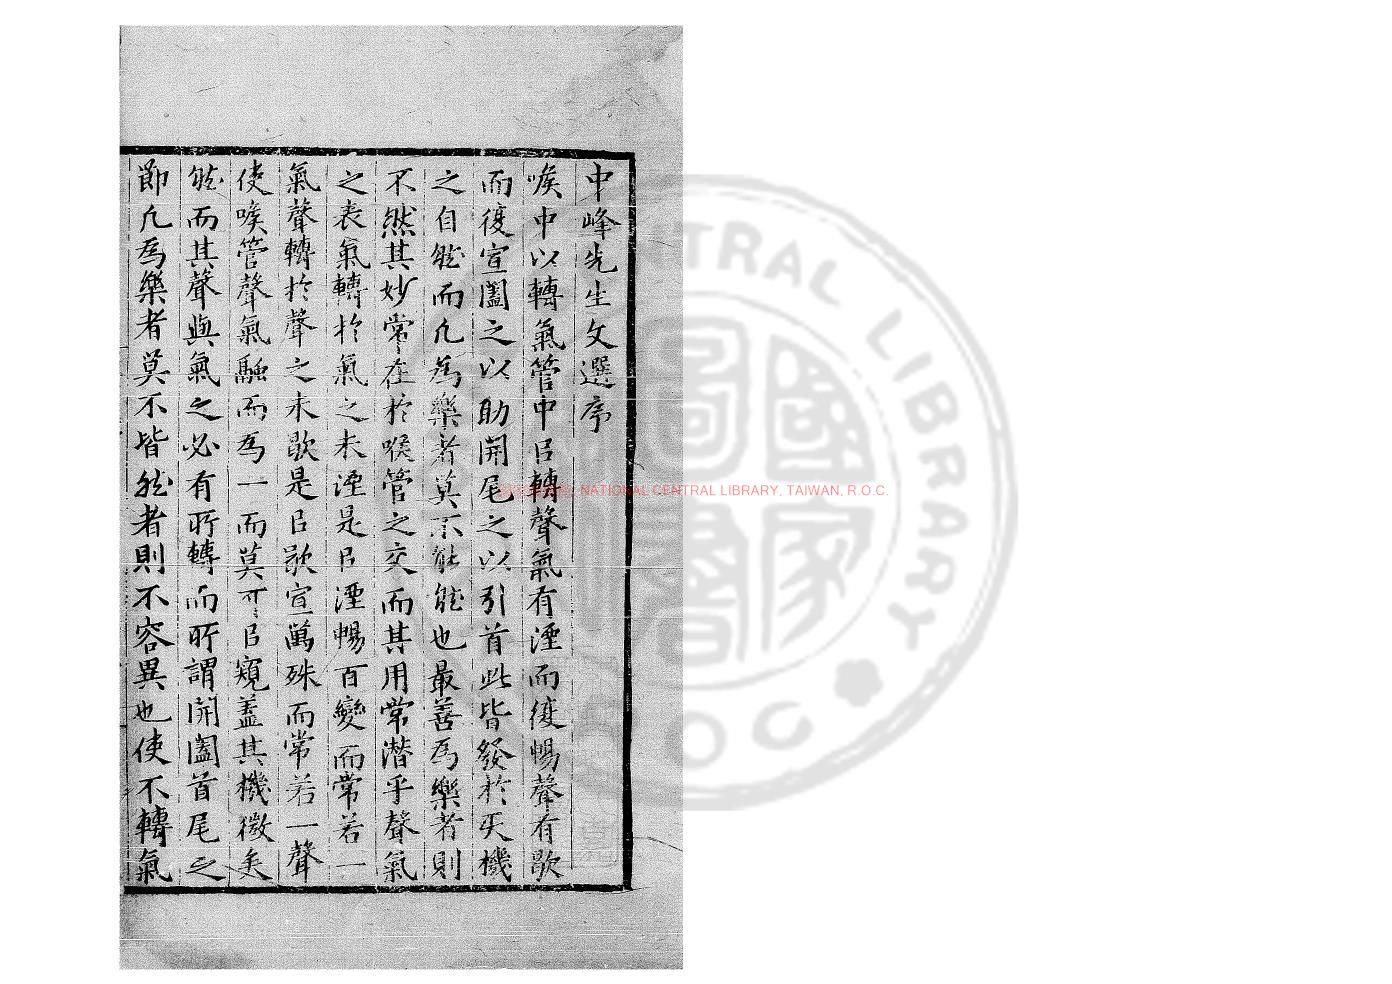 中峰先生文選序
喉中以轉氣管中㠯轉聲氣有湮而復暢聲有歇
而復宣闔之以助開尾之以引首此皆發於天機
之自然而凡為樂者莫不能然也最善為樂者則
不然其妙常在於喉管之交而其用常潛乎聲氣
之表氣轉於氣之未湮是㠯湮暢百變而常若一
氣聲轉於聲之未歇是㠯歇宣萬殊而常若一聲
使喉管聲氣融而為一而莫可㠯窺盖其機微矣
然而其聲與氣之必有所轉而所謂開闔首尾之
節凡為樂者莫不皆然者則不容異也使不轉氣
NATIONAL CENTRAL LIBRARY, TAIWAN, R.O.C.
CENTRAL LIBRARY
ROC
國家